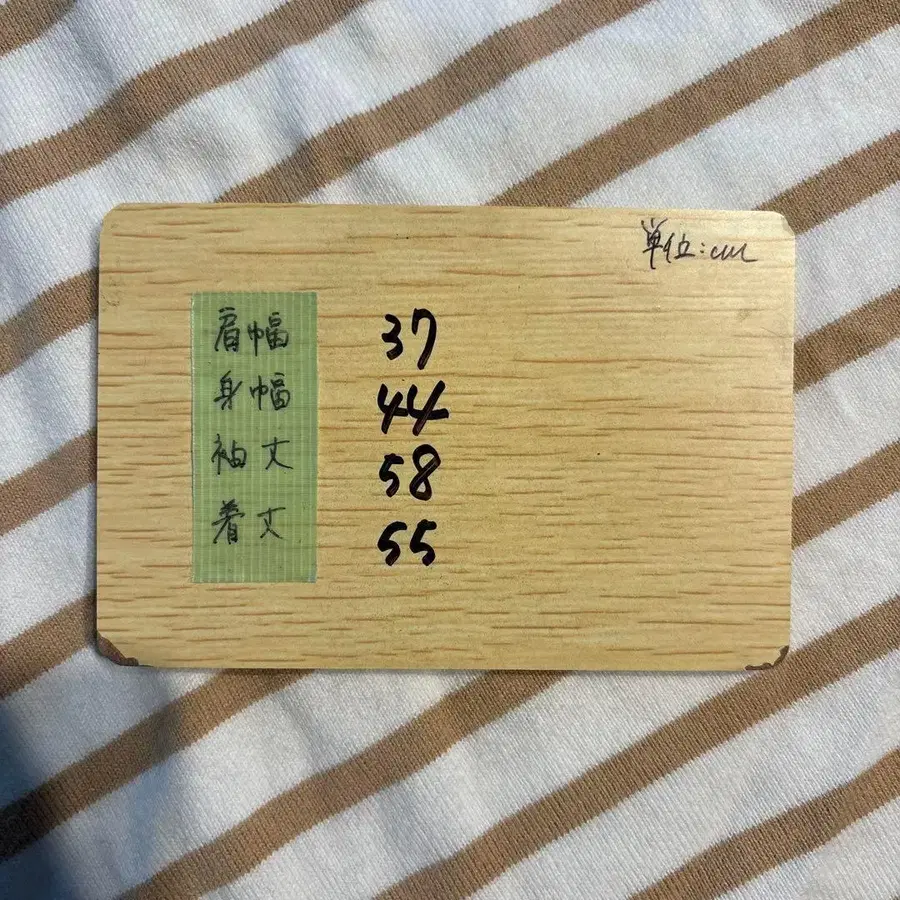 単位:cm
肩幅 37
身幅 44
袖丈 58
着丈 55